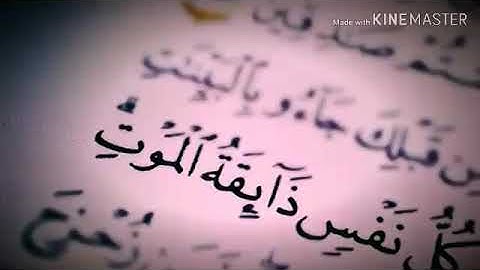 Made with KINEMASTER
صَٰدِقِينَ
قَبْلِكَ جَآءُو بِٱلْبَيِّنَٰتِ
كُلُّ نَفْسٍ ذَآئِقَةُ ٱلْمَوْتِ
زُحْزِحَ